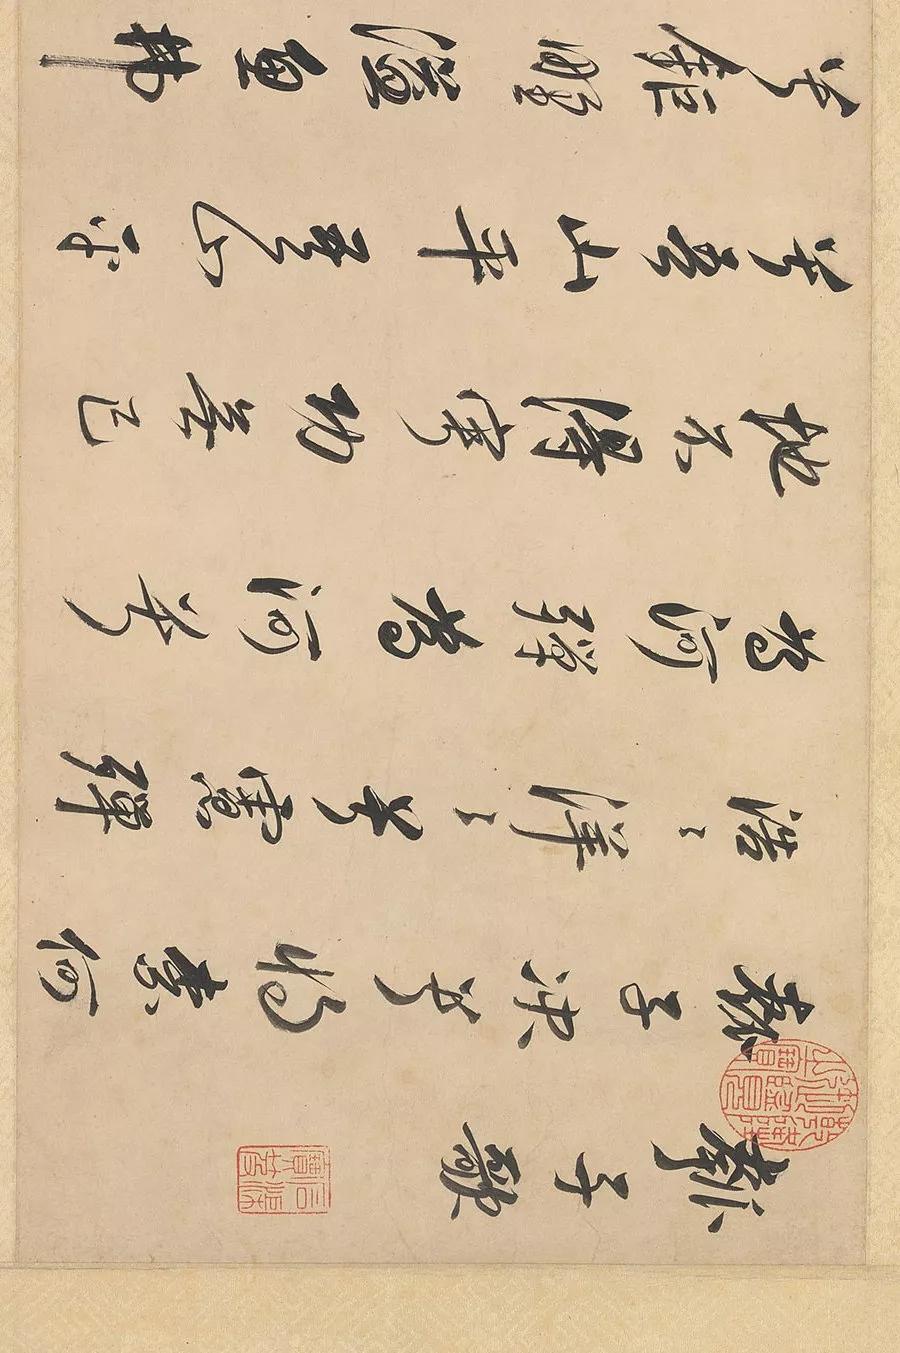 瓠子歌
瓠子決兮將柰何
浩〻洋〻兮慮殫
為河殫為河兮
地不得寧功無已
兮吾山平吾山平
兮鉅野溢魚弗